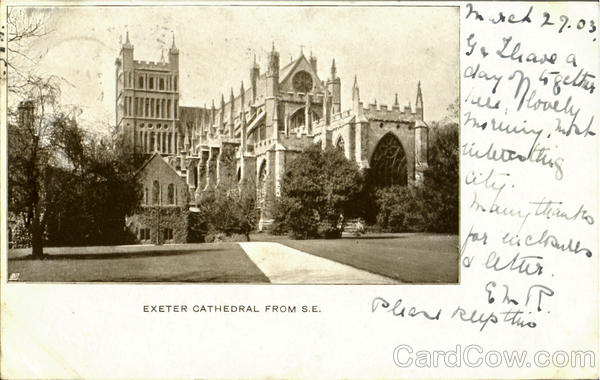 March 29. 03.
G & I have a
day off together
here, lovely
morning, most
interesting
city.
Many thanks
for enclosures
& letter.
E M R.
Please keep this
EXETER CATHEDRAL FROM S.E.
CardCow.com